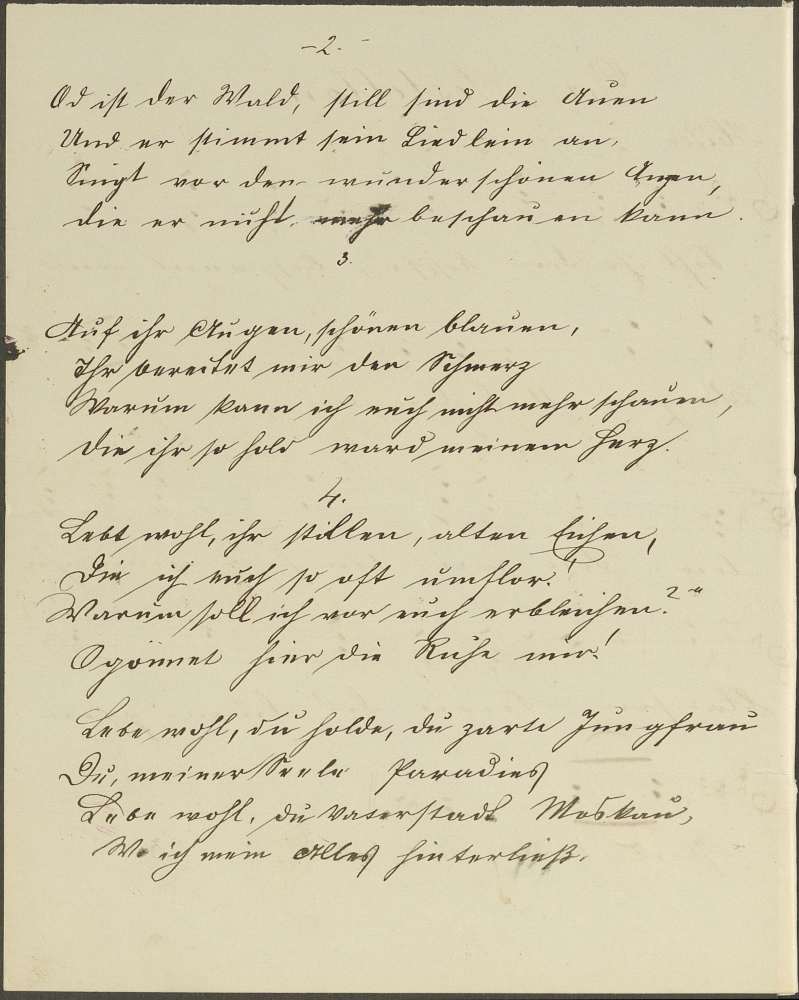 -2.-
Öd ist der Wald, still sind die Auen
Und er stimmt sein Liedlein an,
Singt vor den wunderschönen Augen,
die er nicht mehr beschauen kann.
3.
Auf ihr Augen, schönen blauen,
Ihr bereitet mir den Schmerz
Warum kann ich euch nicht mehr schauen,
die ihr so hold ward meinem Herz.
4.
Lebt wohl, ihr stillen, alten Eichen,
Die ich euch so oft umflor!
Warum soll ich vor euch erbleichen?"
O gönnet hier die Ruhe mir!
Lebe wohl, du holde, du zarte Jungfrau
Du, meiner Seele Paradies
Lebe wohl, du Vaterstadt Moskau,
Wo ich mein Alles hinterließ.